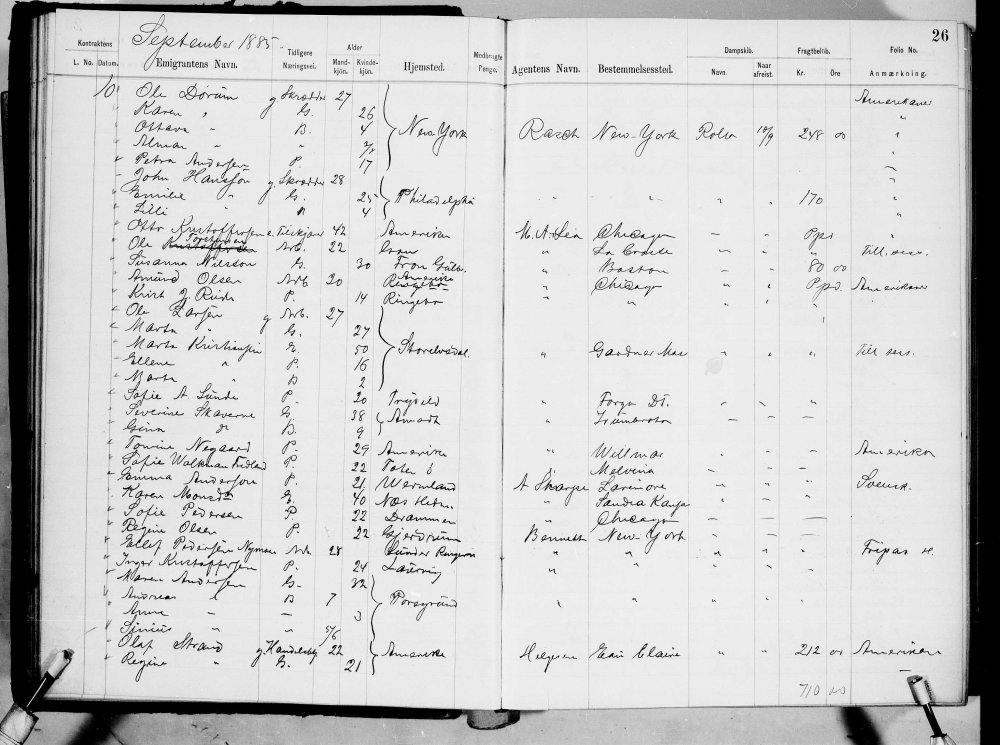 September 1885
26
Kontraktens
L. No. Datum.
Emigrantens Navn.
Tidligere Næringsvei.
Alder
Mandkjön. Kvindekjön.
Hjemsted.
Medbragte Penge.
Agentens Navn.
Bestemmelsessted.
Dampskib.
Navn. Naar afreist.
Fragtbelöb.
Kr. Öre
Folio No.
Anmærkning.
10 Ole Dørum g Skrædder 27 Amerikaner
Karen " G. 26 "
Ottava " B. 4 New-York Rasch New-York Rollo 10/9 248 00 "
Alman " "
Petra Andersen P. 17
John Hansson g. Skrædder 28 "
Emilie " G. 25 Philadelphia " " " " 170 "
Lilli " B 4 "
Otto Kristoffersen 42 Amerika M. A. Lea Chicago " " Ppd
Ole Arb. 22 Gran " La Crosse " " "
Susanna Nilsson G. 30 Fron Gulb. " Boston " " 80 00
Amund Olsen Arb 20 Amerika " Chicago " " Ppd. Amerikaner
Krist J. Rude P. 14 Ringebo " " " "
Ole Larsen g Arb. 27
Marta " G. 27
Marta Kristiansen G. 50 Storelvedal. " Gardner Mas " " "
Ellene " P. 16
Marta " B 2
Sofie A Lunde P. 20 Trysild " Forgn Dt. " " "
Severine Skaverne G. 38 Amodt "
Gina " B. 9
Tomine Negaard P. 29 Amerika " Willmar " " " Amerikan
Sofie Walkman P. 22 Toten Ø " Melvina " " "
Emma Anderson P. 21 Wermland A Skarpe Larimore " " " Svensk.
Karen G. 40 Næs Hedm. "
Sofie Pedersen P. 22 Drammen " Chicago
Regine Olsen P. 22 Gjerdrum Bennett New-York
Ellef Pedersen Nymoen Arb. 28 " " " " " Fripas
Inger Kristoffersen P. 24 Laurvig " " " "
Maren Andersen G. 32
Andreas " B 7 Porsgrund " " " " "
Anna " 3
" " 5/6
Olaf Strand g. Handelsbg 22 Amerika Helgesen Eau Claire " " 212 00 Amerikan
Regine " G. 21
710 00